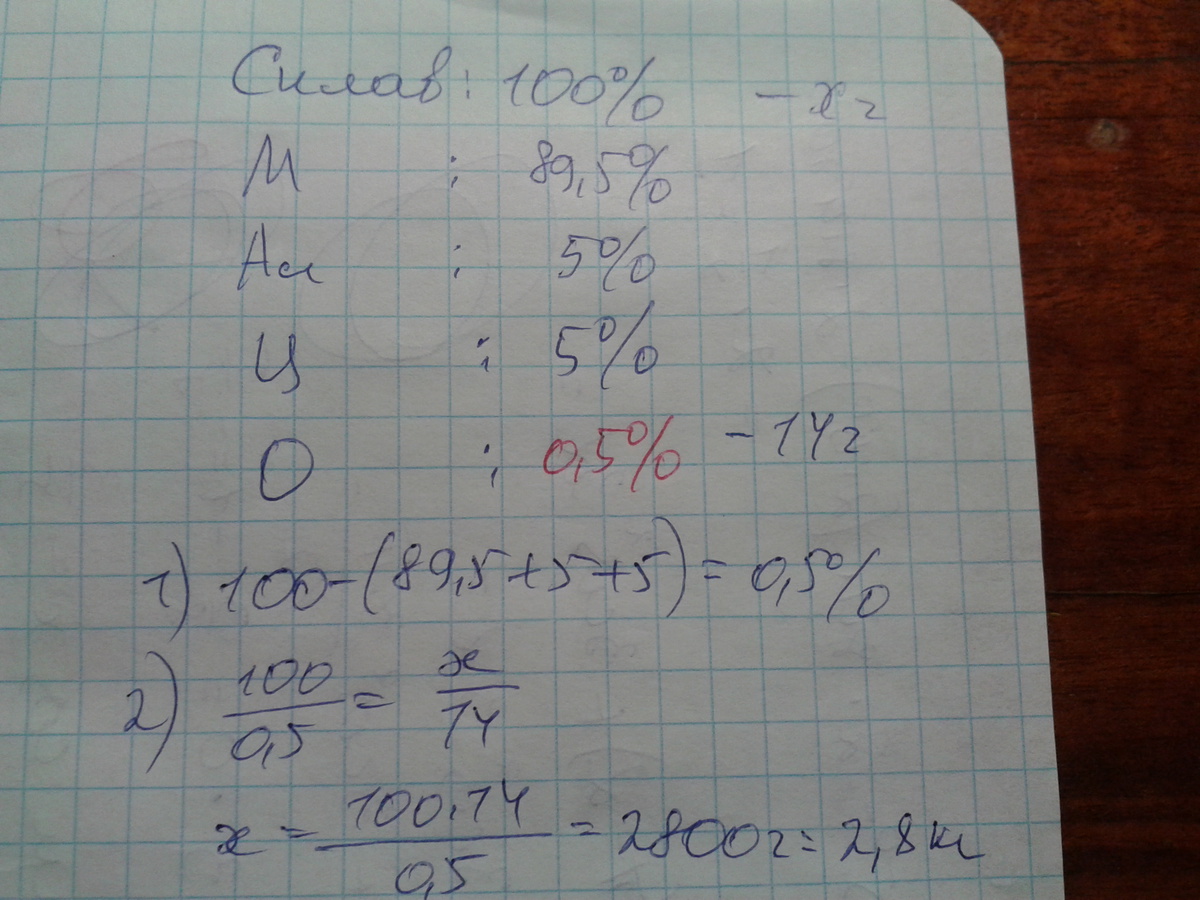 Сплав: 100% – х г
М : 89,5%
Ал : 5%
Ц : 5%
О : 0,5% – 14 г
1) 100-(89,5+5+5)= 0,5%
2) 100/0,5 = х/14
х = 100·14/0,5 = 2800 г = 2,8 кг